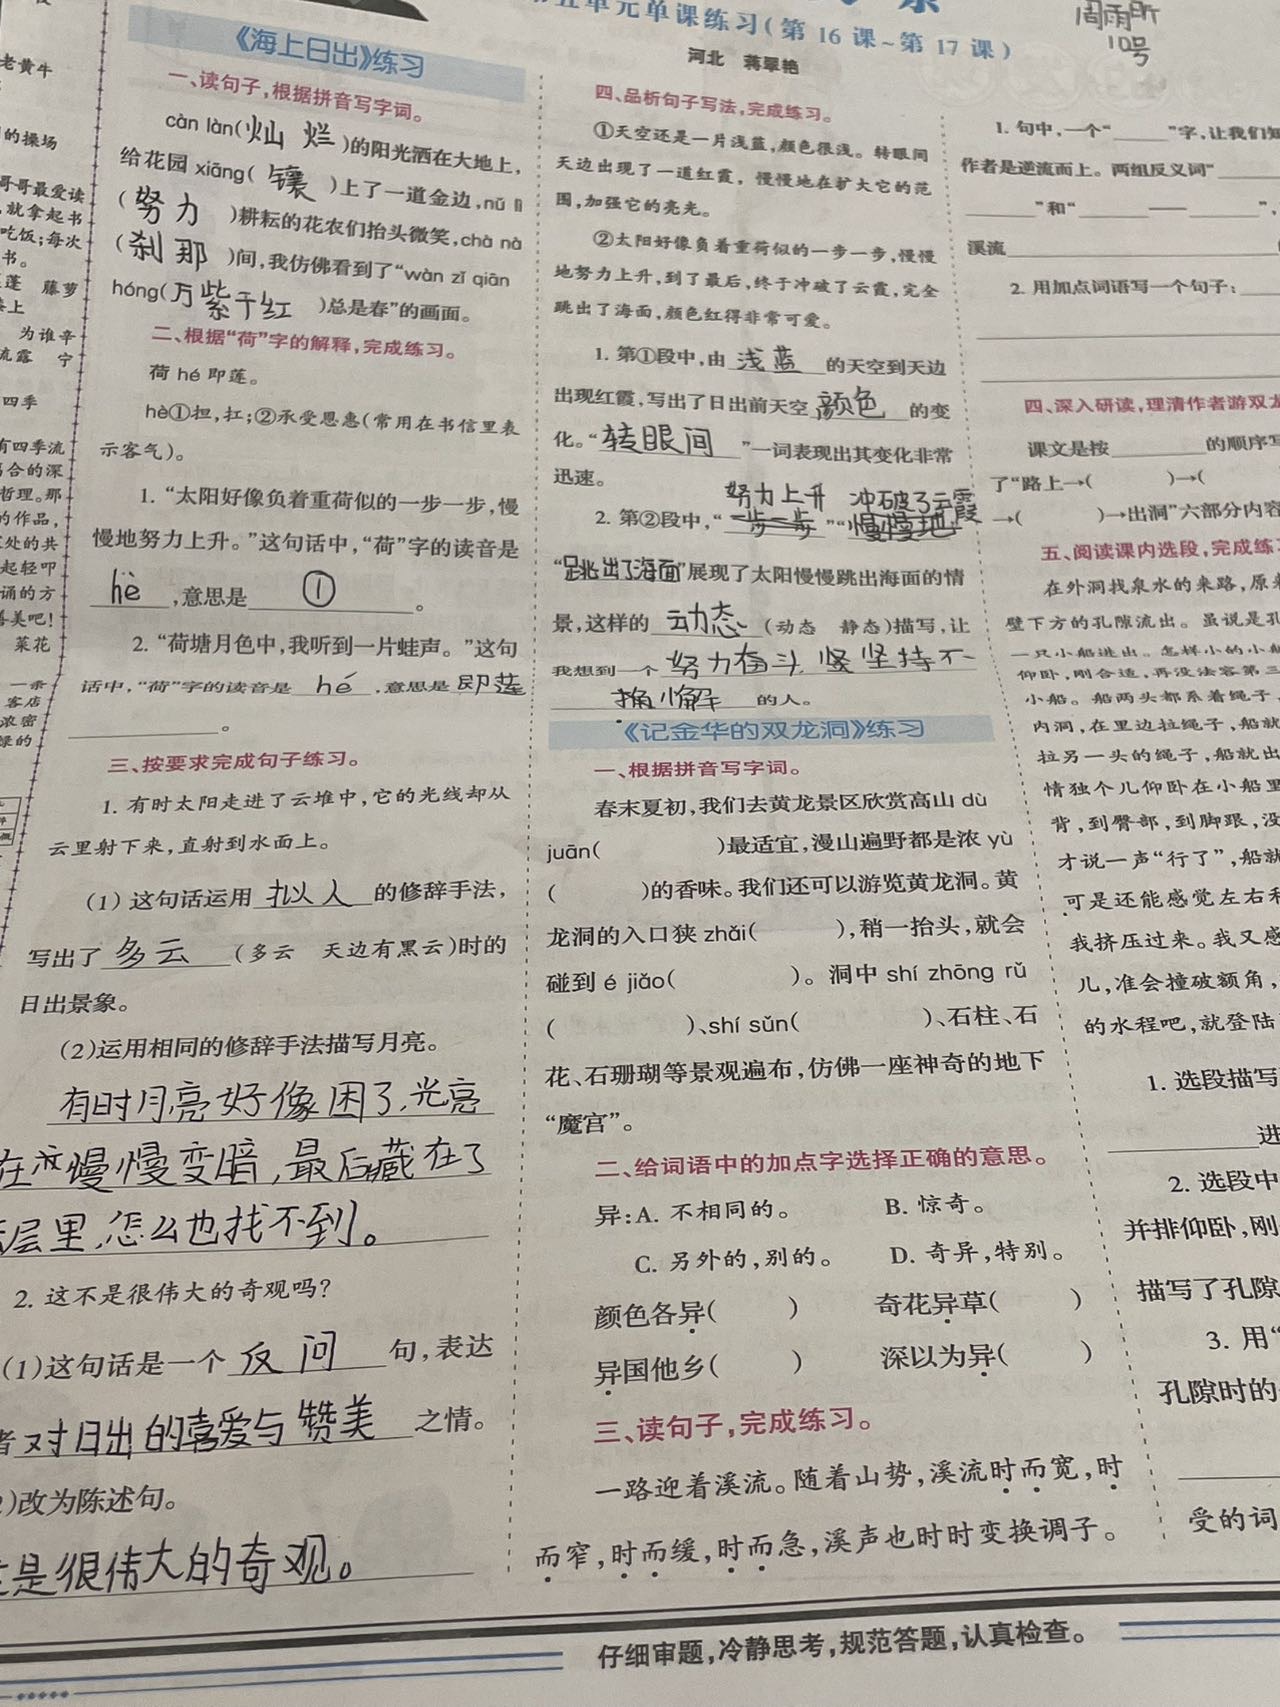 五单元单课练习(第16课~第17课)
周雨昕
10号
河北 蒋翠艳
老黄牛
的操场
哥哥最爱读
就拿起书
吃饭;每次
书。
蓬 藤萝
上
为谁辛
流露 宁
四季
有四季流
合的深
哲理。那
的作品,
处的共
起轻叩
诵的方
美吧!
菜花
一条
客店
浓密
绿的
《海上日出》练习
一、读句子,根据拼音写字词。
càn làn(灿 烂)的阳光洒在大地上,
给花园 xiāng(镶)上了一道金边,nǔ lì
(努力)耕耘的花农们抬头微笑,chà nà
(刹那)间,我仿佛看到了“wàn zǐ qiān
hóng(万紫千红)总是春”的画面。
二、根据“荷”字的解释,完成练习。
荷 hé 即莲。
hè①担,扛;②承受恩惠(常用在书信里表
示客气)。
1. “太阳好像负着重荷似的一步一步,慢
慢地努力上升。”这句话中,“荷”字的读音是
hè,意思是 ① 。
2. “荷塘月色中,我听到一片蛙声。”这句
话中,“荷”字的读音是 hé ,意思是 即莲
。
三、按要求完成句子练习。
1. 有时太阳走进了云堆中,它的光线却从
云里射下来,直射到水面上。
(1) 这句话运用 拟人 的修辞手法,
写出了 多云 (多云 天边有黑云)时的
日出景象。
(2)运用相同的修辞手法描写月亮。
有时月亮好像困了,光亮
在慢慢变暗,最后藏在了
层里,怎么也找不到。
2. 这不是很伟大的奇观吗?
(1)这句话是一个 反问 句,表达
者对日出的喜爱与赞美之情。
)改为陈述句。
是很伟大的奇观。
四、品析句子写法,完成练习。
①天空还是一片浅蓝,颜色很浅。转眼间
天边出现了一道红霞,慢慢地在扩大它的范
围,加强它的亮光。
②太阳好像负着重荷似的一步一步,慢慢
地努力上升,到了最后,终于冲破了云霞,完全
跳出了海面,颜色红得非常可爱。
1. 第①段中,由 浅蓝 的天空到天边
出现红霞,写出了日出前天空 颜色 的变
化。“转眼间”一词表现出其变化非常
迅速。
努力上升 冲破了云霞
2. 第②段中,“一步一步”“慢慢地
“跳出了海面”展现了太阳慢慢跳出海面的情
景,这样的 动态 (动态 静态)描写,让
我想到一个 努力奋斗 坚持不
懈 的人。
《记金华的双龙洞》练习
一、根据拼音写字词。
春末夏初,我们去黄龙景区欣赏高山 dù
juān( )最适宜,漫山遍野都是浓 yù
( )的香味。我们还可以游览黄龙洞。黄
龙洞的入口狭 zhǎi( ),稍一抬头,就会
碰到 é jiǎo( )。洞中 shí zhōng rǔ
( )、shí sǔn( )、石柱、石
花、石珊瑚等景观遍布,仿佛一座神奇的地下
“魔宫”。
二、给词语中的加点字选择正确的意思。
异:A. 不相同的。 B. 惊奇。
C. 另外的,别的。 D. 奇异,特别。
颜色各异( ) 奇花异草( )
异国他乡( ) 深以为异( )
三、读句子,完成练习。
一路迎着溪流。随着山势,溪流时而宽,时
而窄,时而缓,时而急,溪声也时时变换调子。
1. 句中,一个“ ”字,让我们知
作者是逆流而上。两组反义词“
”和“ —— ”,
溪流
2. 用加点词语写一个句子:
四、深入研读,理清作者游双龙
课文是按 的顺序写
了“路上→( )→(
→( )→出洞”六部分内容
五、阅读课内选段,完成练习
在外洞找泉水的来路,原来
壁下方的孔隙流出。虽说是孔
一只小船进出。怎样小的小船
仰卧,刚合适,再没法容第三
小船。船两头都系着绳子,
内洞,在里边拉绳子,船就
拉另一头的绳子,船就出
情独个儿仰卧在小船里
背,到臀部,到脚跟,没
才说一声“行了”,船就
可是还能感觉左右和
我挤压过来。我又感
儿,准会撞破额角,
的水程吧,就登陆
1. 选段描写
进
2. 选段中
并排仰卧,刚
描写了孔隙
3. 用“
孔隙时的
受的词
仔细审题,冷静思考,规范答题,认真检查。